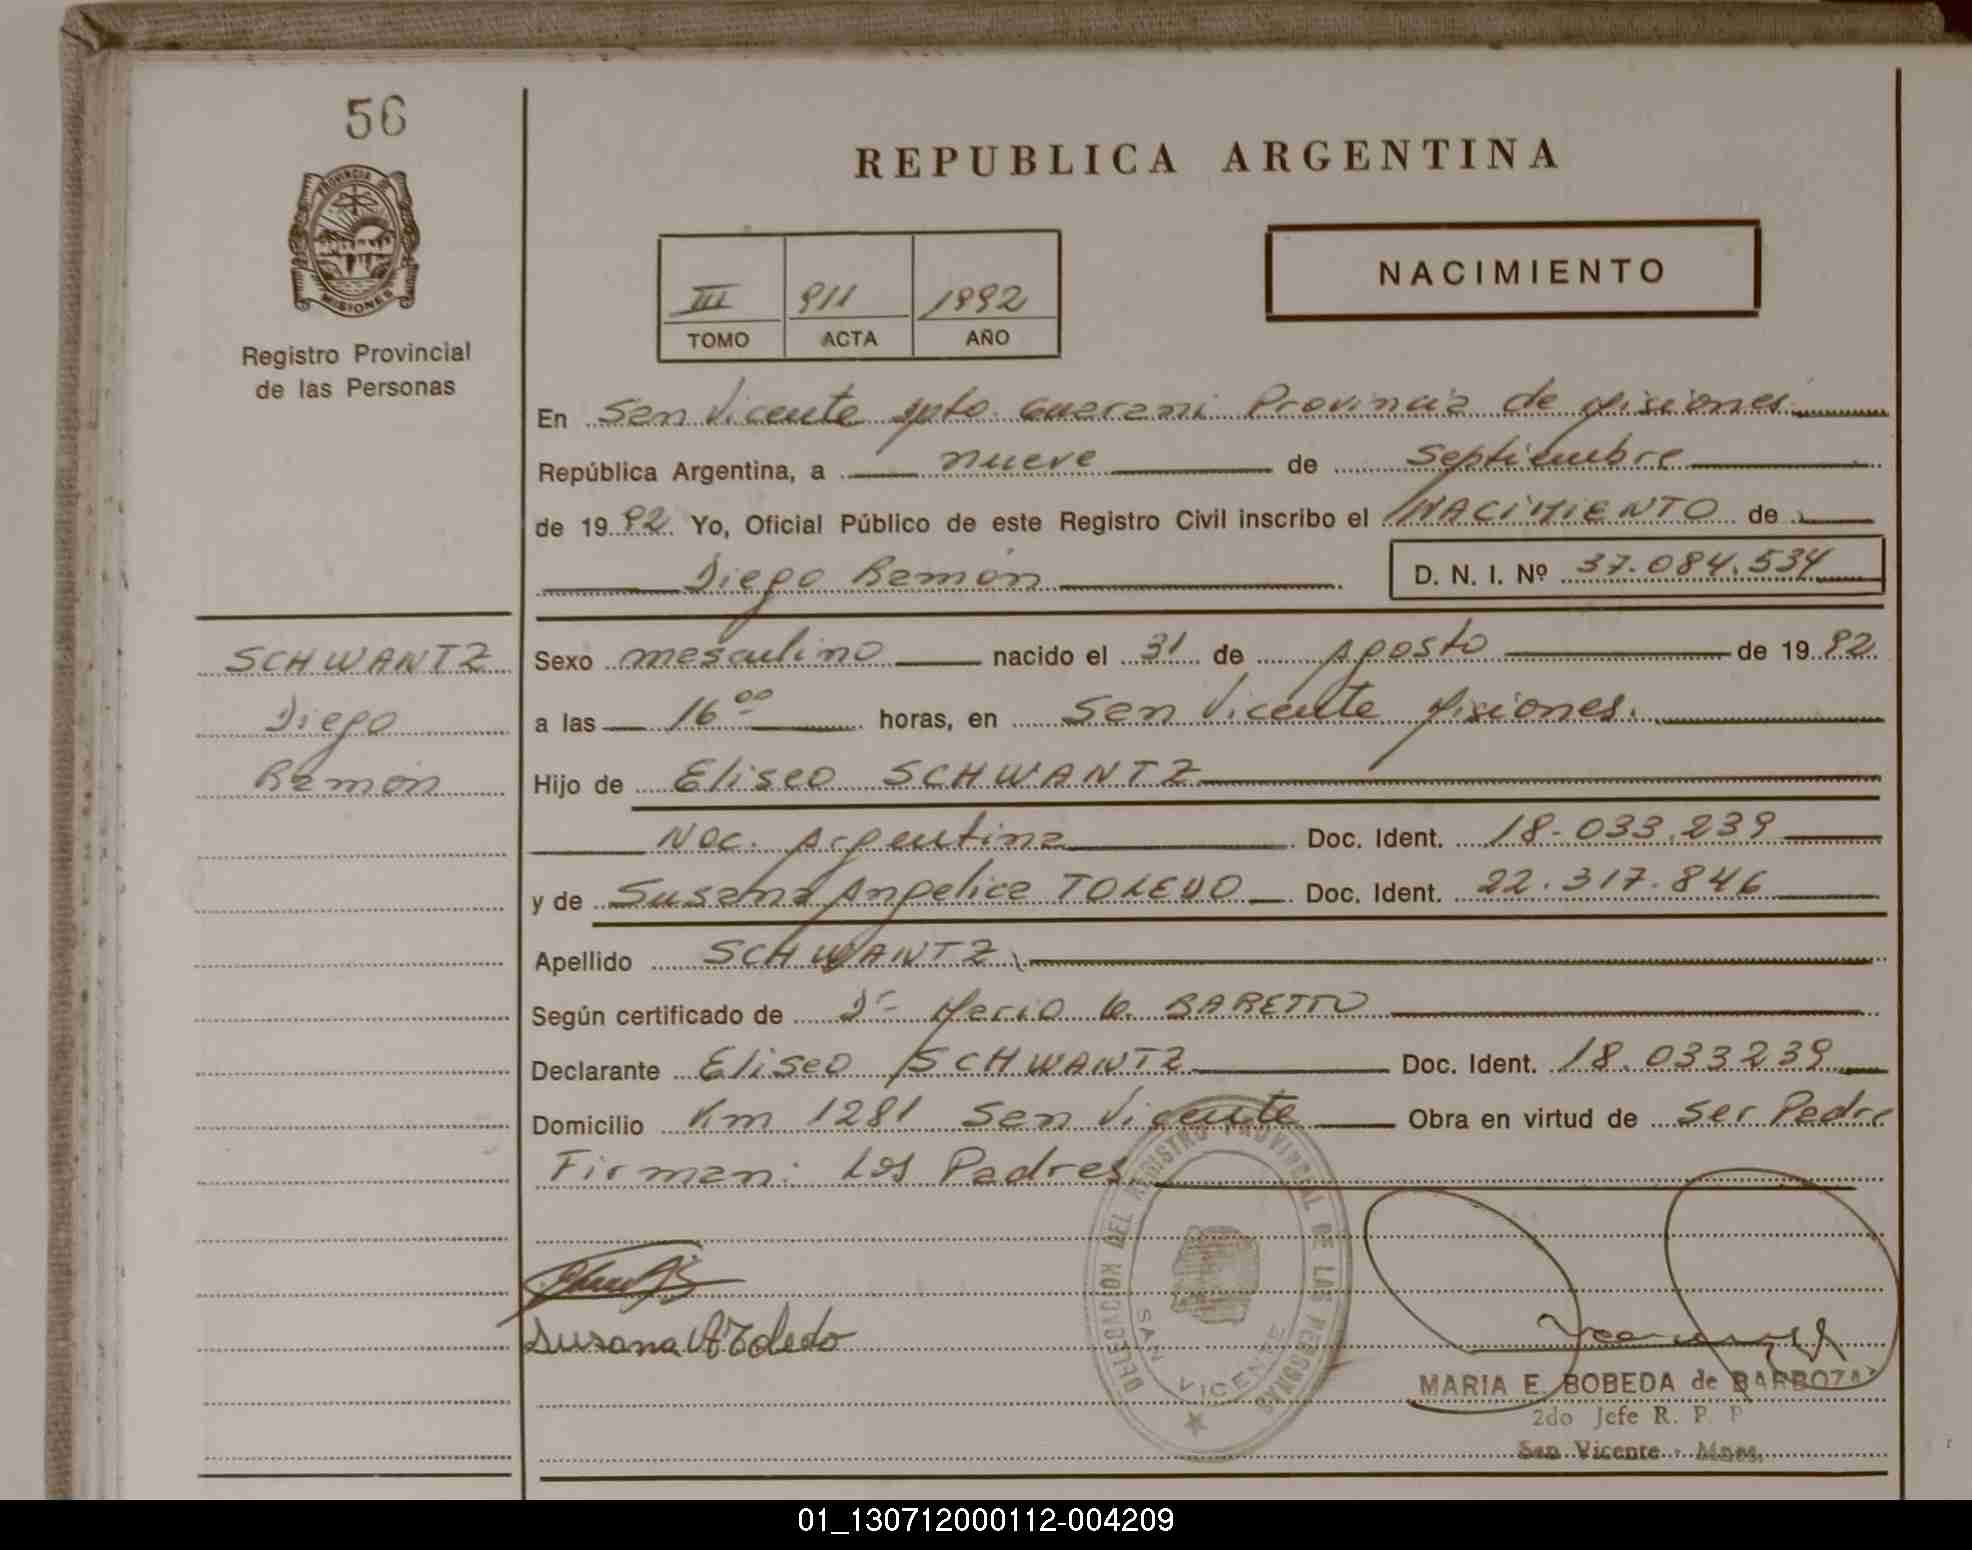 56
PROVINCIA DE
MISIONES
Registro Provincial
de las Personas
REPUBLICA ARGENTINA
III 911 1992
TOMO ACTA AÑO
NACIMIENTO
En San Vicente Dpto. Guarani Provincia de Misiones
República Argentina, a nueve de Septiembre
de 1992 Yo, Oficial Público de este Registro Civil inscribo el NACIMIENTO de
Diego Ramón D. N. I. Nº 37.084.534
SCHWANTZ
Diego
Ramón
Sexo masculino nacido el 31 de Agosto de 1992
a las 16 00 horas, en San Vicente Misiones.
Hijo de Eliseo SCHWANTZ
Nac. Argentina Doc. Ident. 18.033.239
y de Susana Angelica TOLEDO Doc. Ident. 22.317.846
Apellido SCHWANTZ
Según certificado de Dr Mario G. BARETTO
Declarante Eliseo SCHWANTZ Doc. Ident. 18.033239
Domicilio Km 1281 San Vicente Obra en virtud de ser Padre
Firman: Los Padres
Susana A Toledo
DELEGACION DEL REGISTRO PROVINCIAL DE LAS PERSONAS
SAN VICENTE
MARIA E. BOBEDA de BARBOZA
2do Jefe R. P. P
San Vicente - Mnes.
01_130712000112-004209